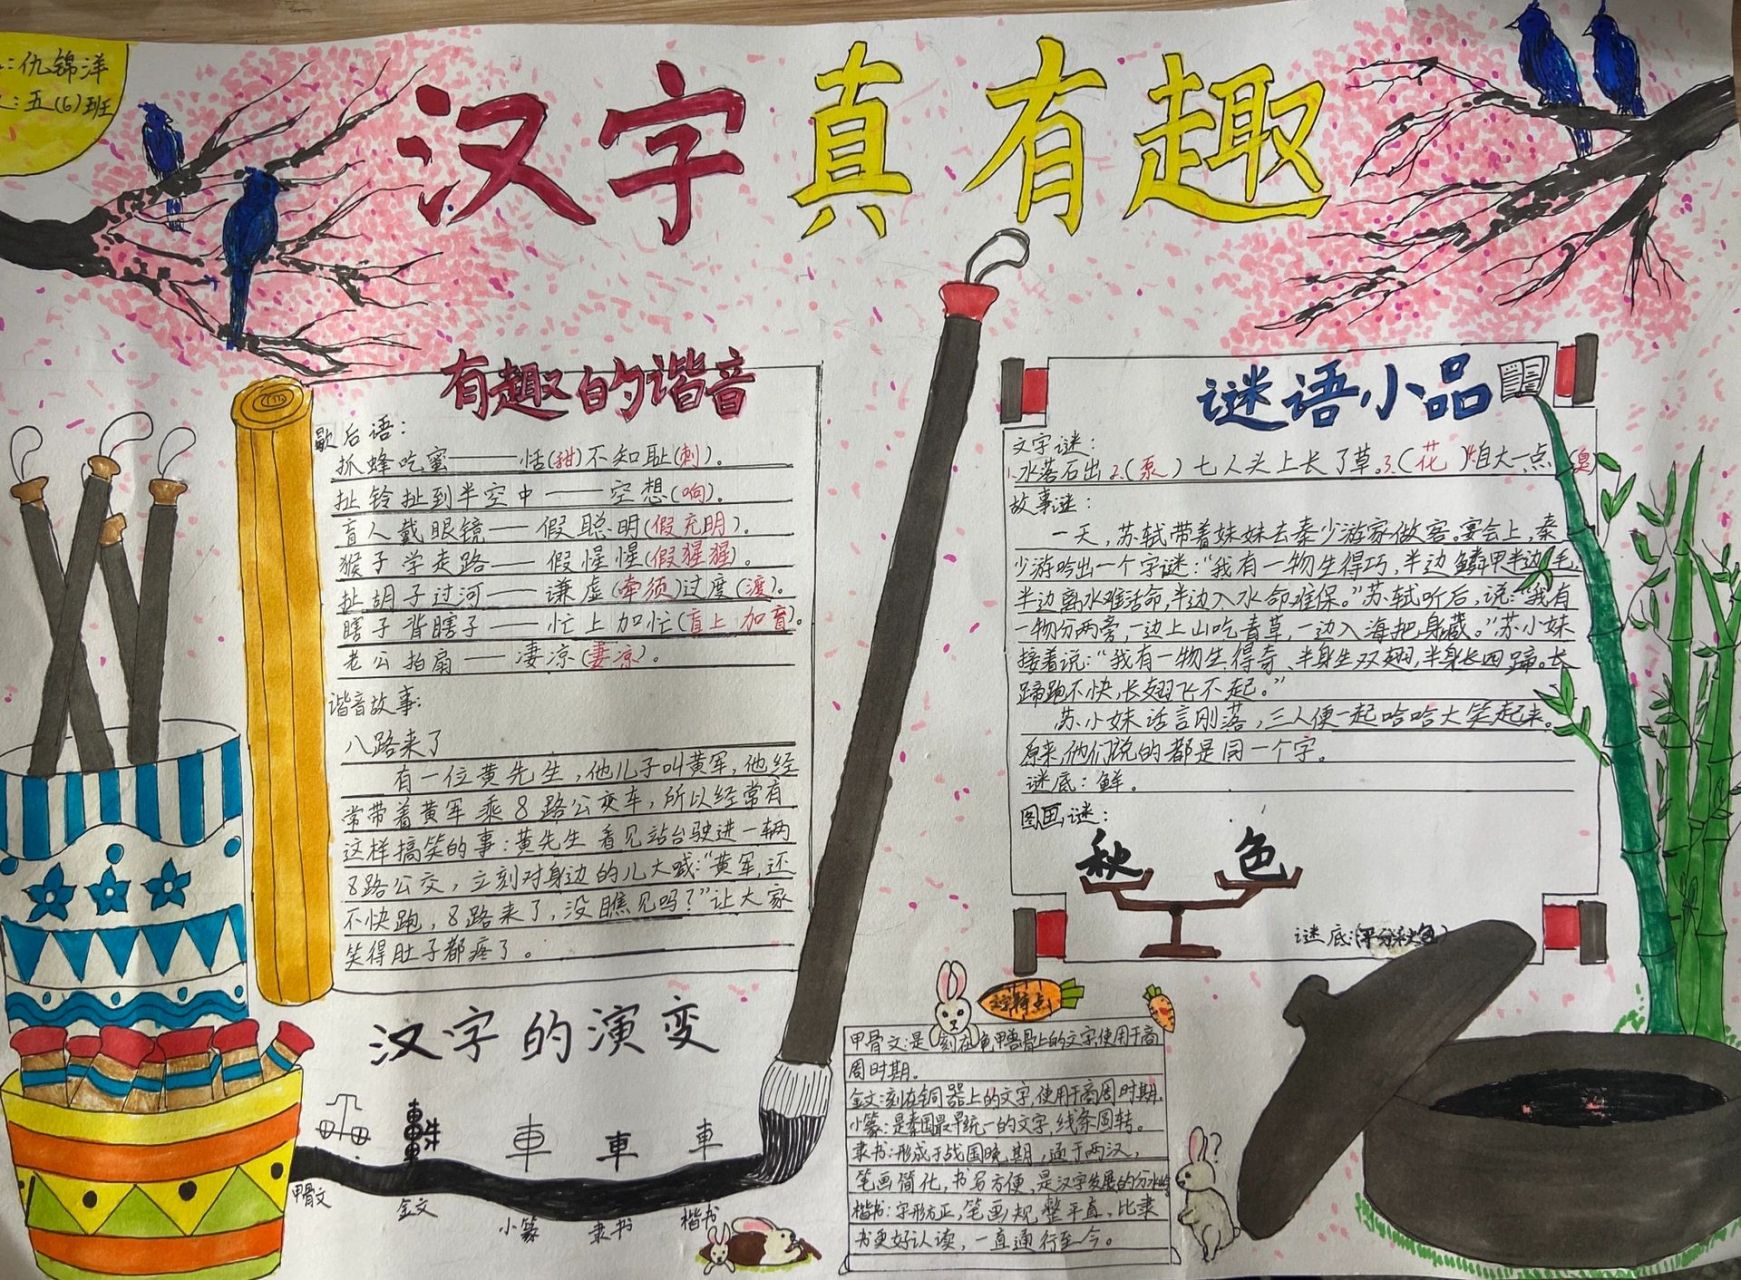 :仇锦洋
:五(6)班
汉字真有趣
有趣的谐音
歇后语:
抓蜂吃蜜——恬(甜)不知耻(刺)。
扯铃扯到半空中——空想(响)。
盲人戴眼镜——假聪明(假充明)。
猴子学走路——假惺惺(假猩猩)。
扯胡子过河——谦虚(牵须)过度(渡)。
瞎子背瞎子——忙上加忙(盲上加盲)。
老公拍扇——凄凉(妻凉)。
谐音故事:
八路来了
有一位黄先生,他儿子叫黄军,他经
常带着黄军乘8路公交车,所以经常有
这样搞笑的事:黄先生看见站台驶进一辆
8路公交,立刻对身边的儿大喊:“黄军,还
不快跑,8路来了,没瞧见吗?”让大家
笑得肚子都疼了。
谜语小品
文字谜:
1.水落石出2.(泵)七人头上长了草3.(花)4.自大一点(臭)
故事谜:
一天,苏轼带着妹妹去秦少游家做客。宴会上,秦
少游吟出一个字谜:“我有一物生得巧,半边鳞甲半边毛,
半边离水难活命,半边入水命难保。”苏轼听后,说:“我有
一物分两旁,一边上山吃青草,一边入海把身藏。”苏小妹
接着说:“我有一物生得奇,半身生双翅,半身长四蹄。长
蹄跑不快,长翅飞不起。”
苏小妹话言刚落,三人便一起哈哈大笑起来。
原来,他们说的都是同一个字。
谜底:鲜。
图画谜:
秋 色
谜底:(平分秋色)
汉字的演变
車 車 車
甲骨文 金文 小篆 隶书 楷书
文字特点
甲骨文:是刻在龟甲兽骨上的文字,使用于商
周时期。
金文:刻在铜器上的文字,使用于商周时期。
小篆:是秦国最早统一的文字,线条圆转。
隶书:形成于战国晚期,通于两汉,
笔画简化,书写方便,是汉字发展的分水岭
楷书:字形方正,笔画规整平直,比隶
书更好认读,一直通行至今。
?